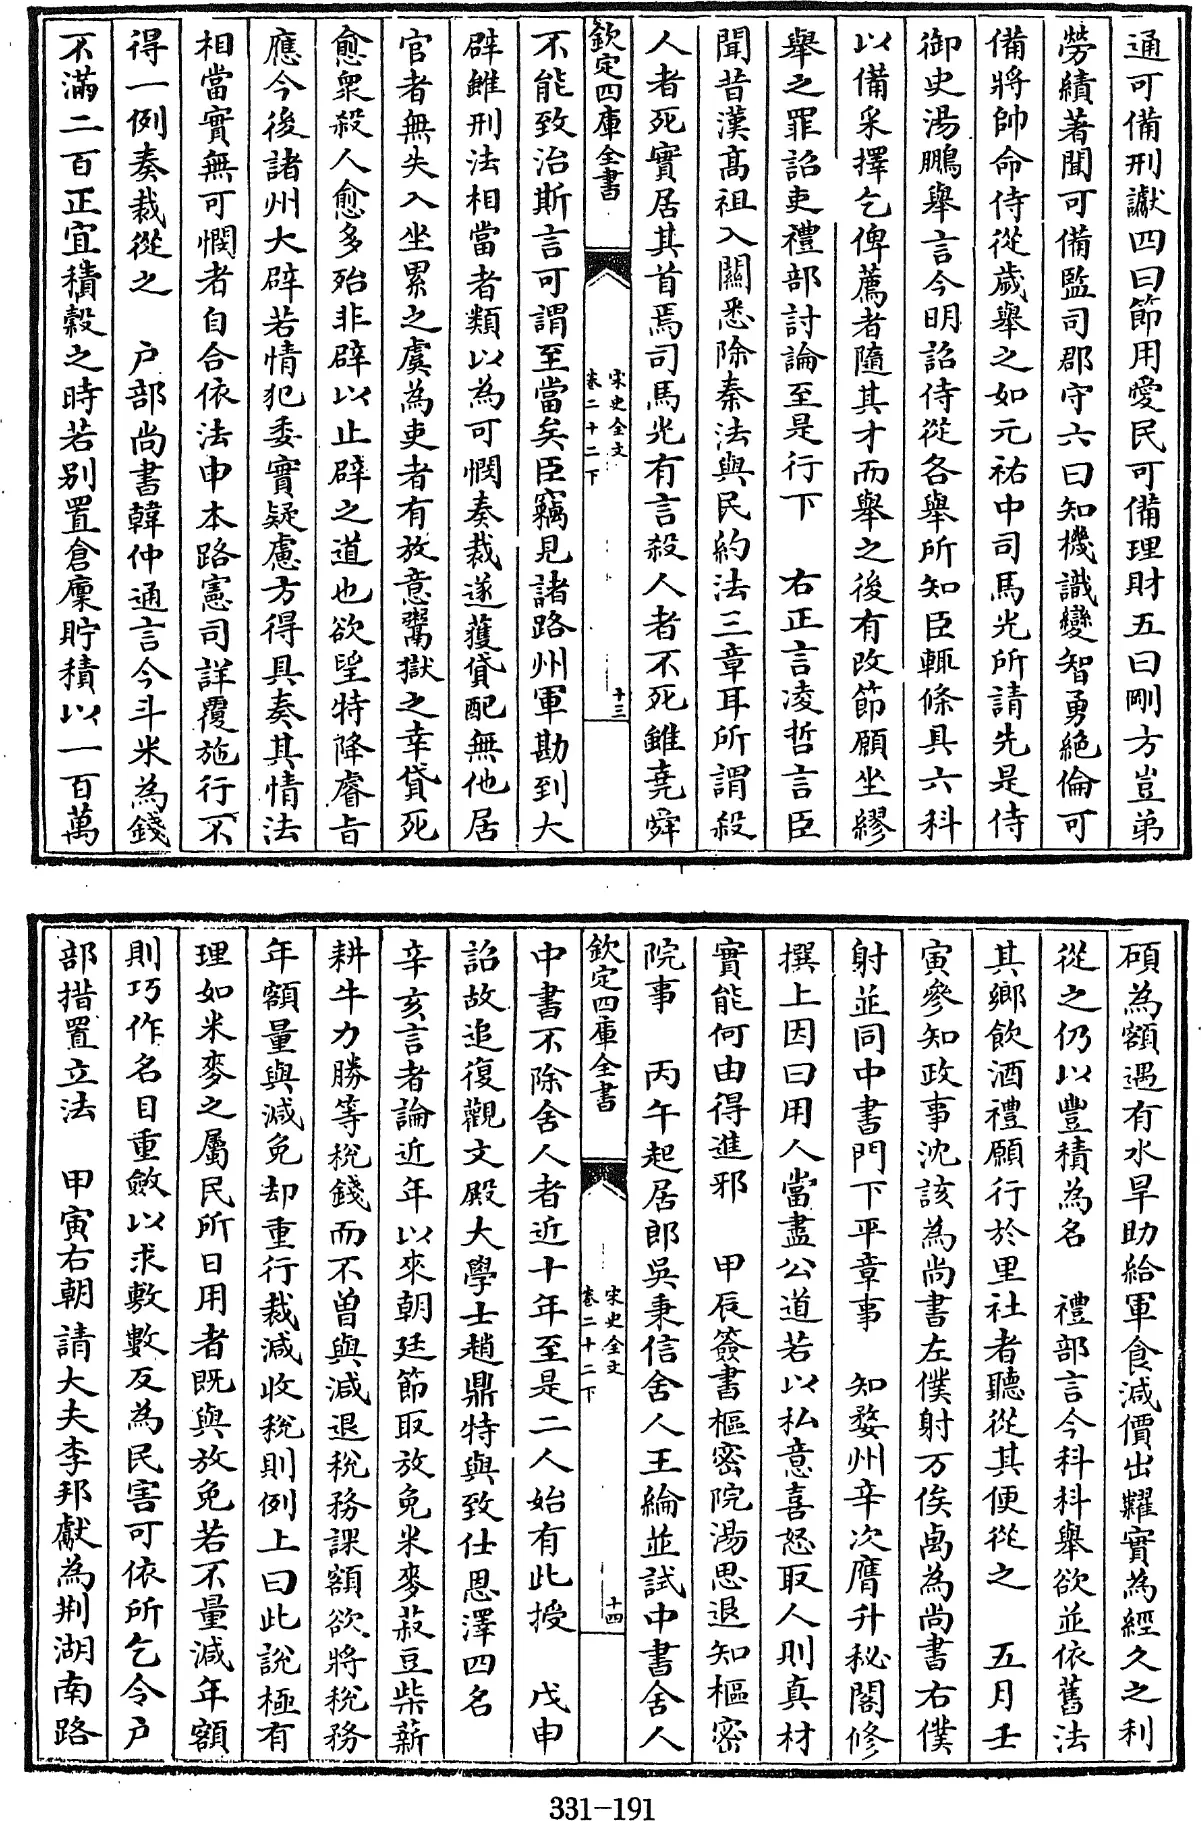 通可備刑讞四曰節用愛民可備理財五曰剛方豈弟
勞績著聞可備監司郡守六曰知機識變智勇絶倫可
備將帥命侍從歲舉之如元祐中司馬光所請先是侍
御史湯鵬舉言今明詔侍從各舉所知臣輒條具六科
以備采擇乞俾薦者隨其才而舉之後有改節願坐繆
舉之罪詔吏禮部討論至是行下　右正言凌哲言臣
聞昔漢髙祖入闗悉除秦法與民約法三章耳所謂殺
人者死實居其首焉司馬光有言殺人者不死雖堯舜
欽定四庫全書
宋史全文
卷二十二下
十三
不能致治斯言可謂至當矣臣竊見諸路州軍勘到大
辟雖刑法相當者類以為可憫奏裁遂獲貸配無他居
官者無失入坐累之虞為吏者有放意鬻獄之幸貸死
愈衆殺人愈多殆非辟以止辟之道也欲望特降睿旨
應今後諸州大辟若情犯委實疑慮方得具奏其情法
相當實無可憫者自合依法申本路憲司詳覆施行不
得一例奏裁從之　户部尚書韓仲通言今斗米為錢
不滿二百正宜積穀之時若别置倉廩貯積以一百萬
碩為額遇有水旱助給軍食減價出糶實為經久之利
從之仍以豐積為名　禮部言今科科舉欲並依舊法
其鄉飲酒禮願行於里社者聽從其便從之　五月壬
寅參知政事沈該為尚書左僕射万俟卨為尚書右僕
射並同中書門下平章事　知婺州辛次膺升秘閣修
撰上因曰用人當盡公道若以私意喜怒取人則真材
實能何由得進邪　甲辰簽書樞密院湯思退知樞密
院事　丙午起居郎吳秉信舍人王綸並試中書舍人
欽定四庫全書
宋史全文
卷二十二下
十四
中書不除舍人者近十年至是二人始有此授　戊申
詔故追復觀文殿大學士趙鼎特與致仕恩澤四名
辛亥言者論近年以來朝廷節取放免米麥菽豆柴薪
耕牛力勝等稅錢而不曽與減退稅務課額欲將稅務
年額量與減免却重行裁減收稅則例上曰此說極有
理如米麥之屬民所日用者既與放免若不量減年額
則巧作名目重斂以求敷數反為民害可依所乞令户
部措置立法　甲寅右朝請大夫李邦獻為荆湖南路
331-191